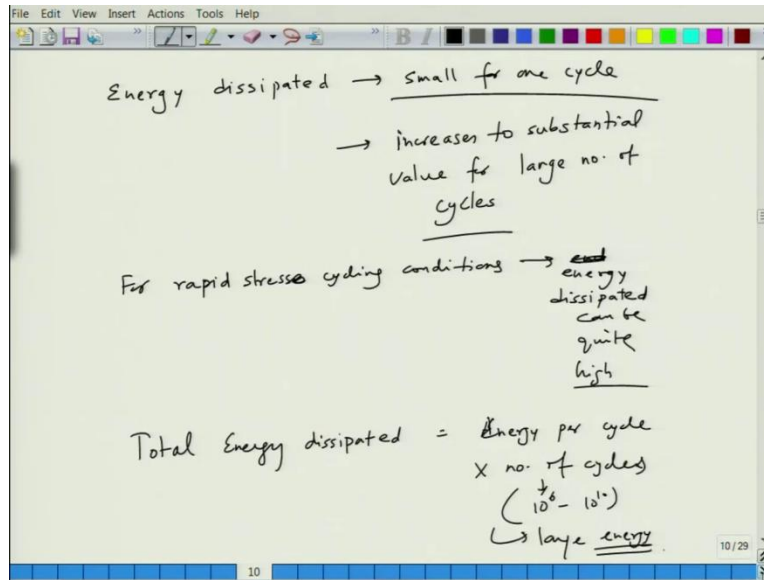 File Edit View Insert Actions Tools Help
Energy dissipated → small for one cycle
→ increases to substantial
value for large no. of
cycles
For rapid stress cycling conditions → energy
dissipated
can be
quite
high
Total Energy dissipated = Energy per cycle
x no. of cycles
(10⁶ - 10¹⁰)
↳ large energy
10/29
10